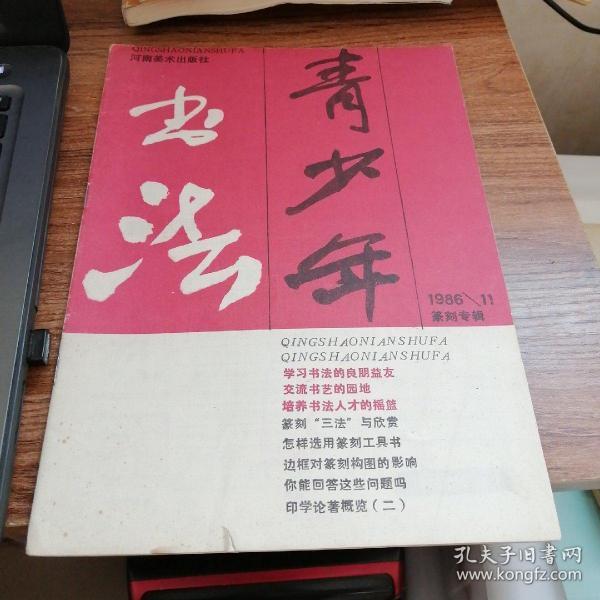 QINGSHAONIANSHUFA
河南美术出版社
青少年
书法
1986\11
篆刻专辑
QINGSHAONIANSHUFA
QINGSHAONIANSHUFA
学习书法的良朋益友
交流书艺的园地
培养书法人才的摇篮
篆刻“三法”与欣赏
怎样选用篆刻工具书
边框对篆刻构图的影响
你能回答这些问题吗
印学论著概览(二)
孔夫子旧书网
www.kongfz.com